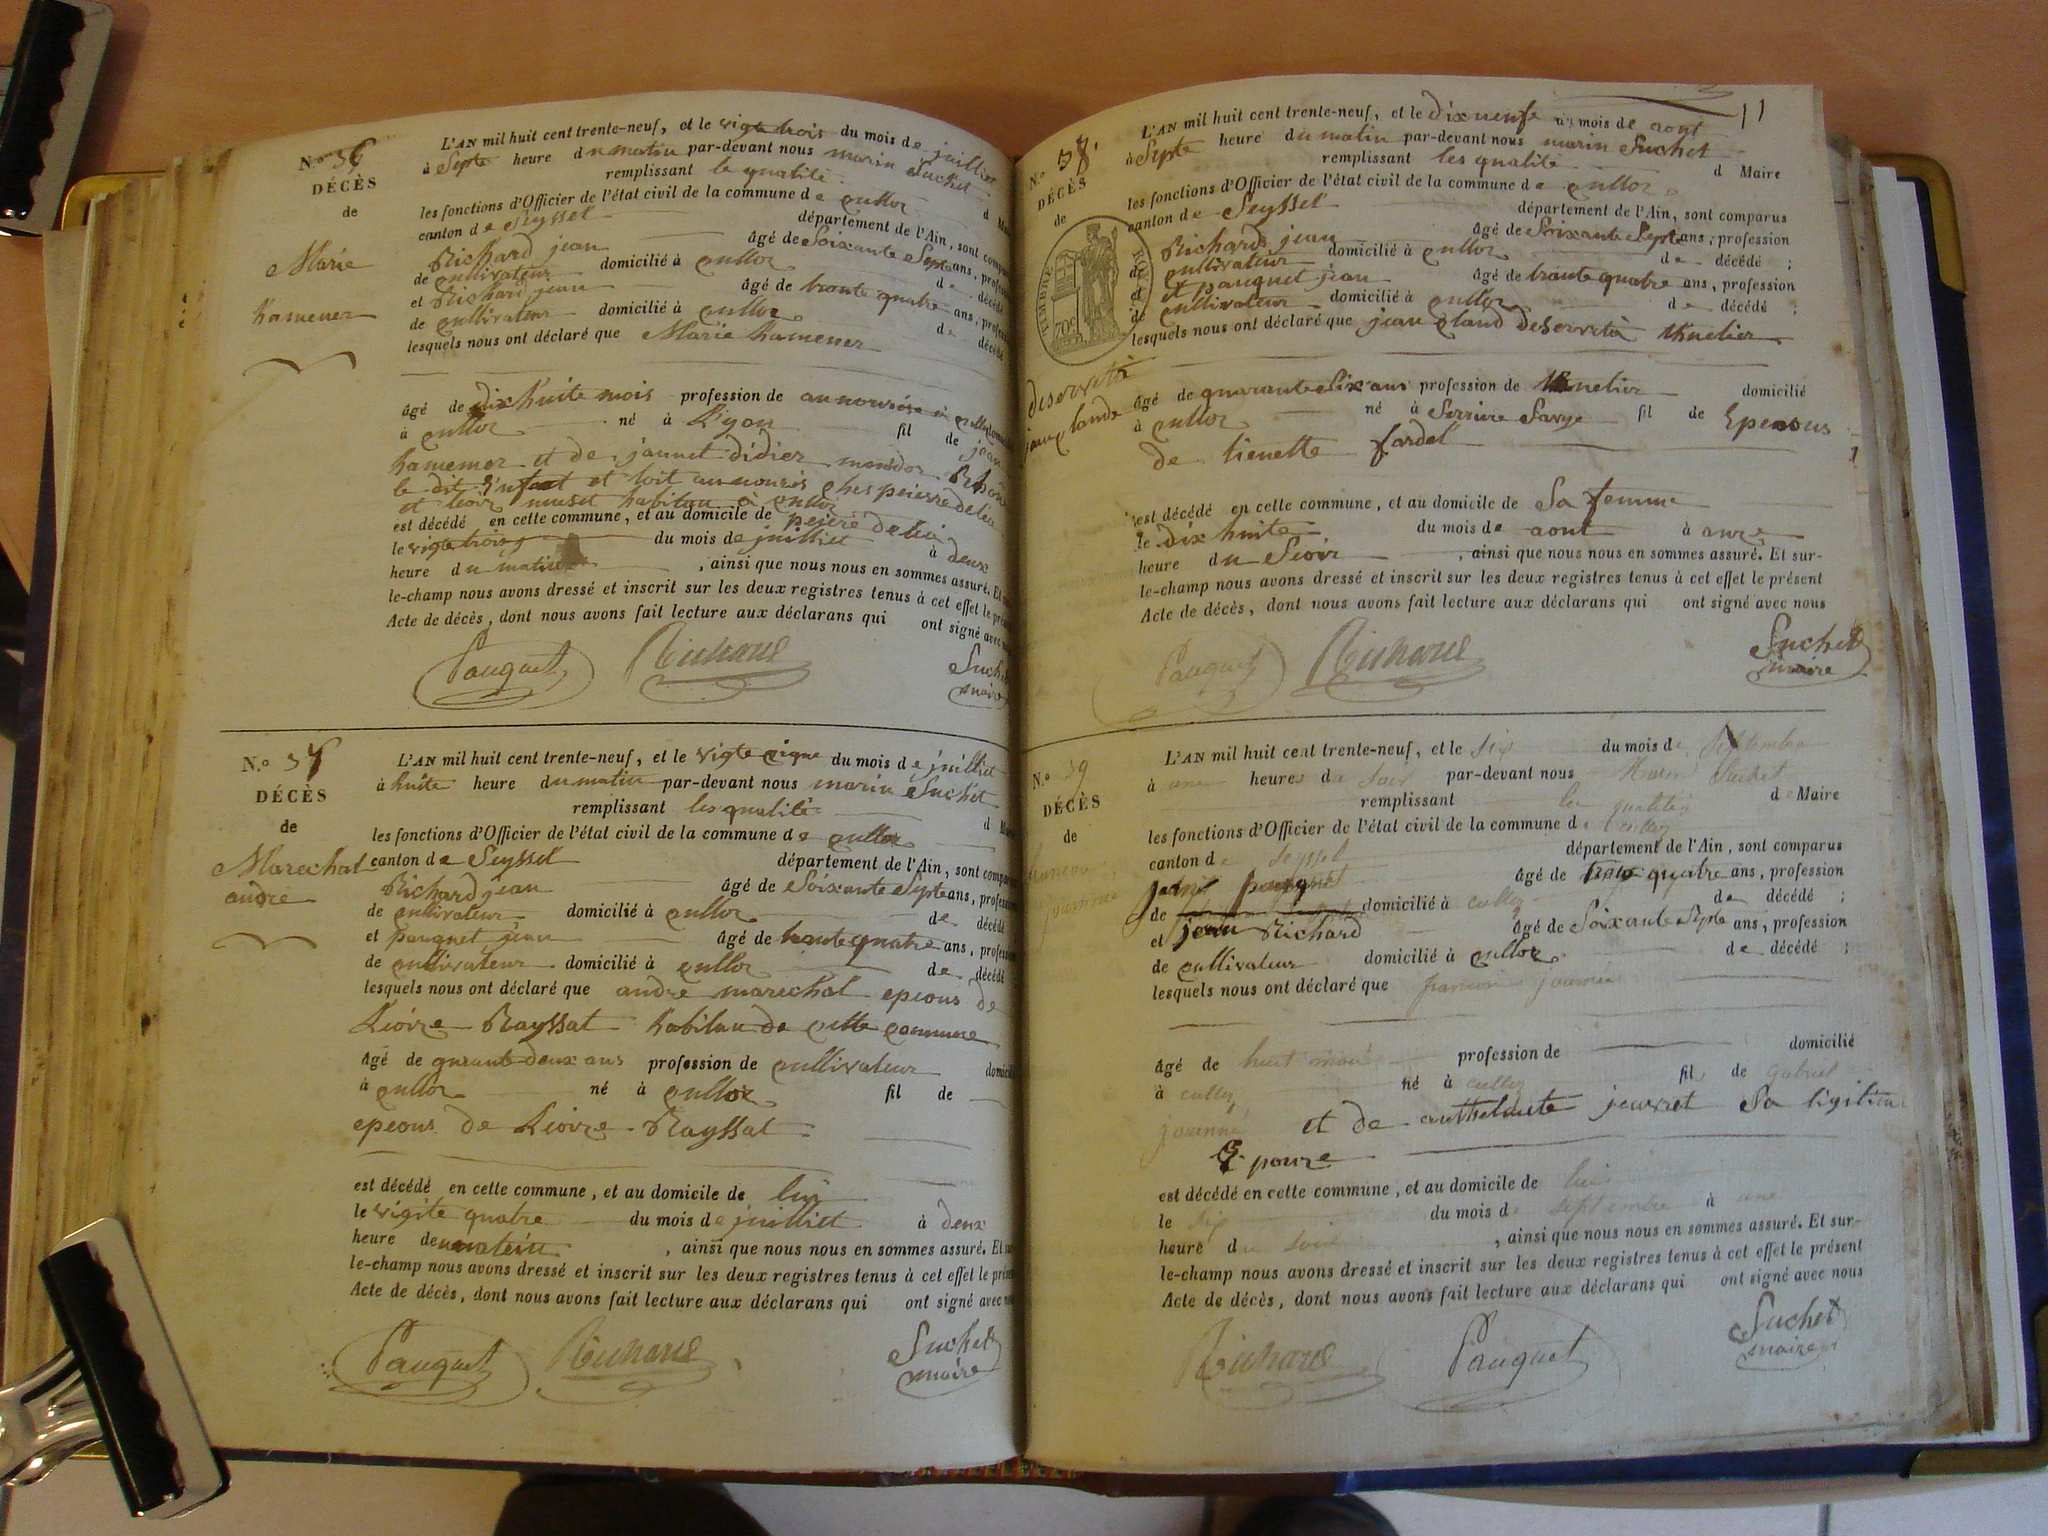 N.o 36
DÉCÈS
de
Marie
hamener
L'AN mil huit cent trente-neuf, et le vigte trois du mois de juilliet
à Septe heure du matin par-devant nous marin Suchet
remplissant le qualité d
les fonctions d'Officier de l'état civil de la commune de culloz
canton de Seyssel département de l'Ain, sont
Richard jean âgé de Soixante Septe ans,
de cultivateur domicilié à culloz de décédé
et Richard jean âgé de trante quatre ans,
de cultivateur domicilié à culloz de décédé
lesquels nous ont déclaré que Marie hamener
âgé de dix huite mois profession de
à culloz né à Lyon fil de jean
hamemer et de jannet didier
le dit enfant et toit
et habitan à culloz
est décédé en cette commune, et au domicile de
le vigte trois du mois de juilliet à deux
heure du matin, ainsi que nous nous en sommes assuré. Et
le-champ nous avons dressé et inscrit sur les deux registres tenus à cet effet le
Acte de décès, dont nous avons fait lecture aux déclarans qui ont signé avec
Pauguet Richard Suchet
maire
N.o 37
DÉCÈS
de
Marechal
andre
L'AN mil huit cent trente-neuf, et le vigte cique du mois de juilliet
à huite heure du matin par-devant nous marin Suchet
remplissant les qualité d
les fonctions d'Officier de l'état civil de la commune de culloz
canton de Seyssel département de l'Ain, sont
Richard jean âgé de Soixante Septe ans,
de cultivateur domicilié à culloz de décédé
et pauguet jean âgé de trante quatre ans,
de cultivateur domicilié à culloz de décédé
lesquels nous ont déclaré que andre marechal epeous de
Rayssat habitan de cette commune
âgé de quarante deux ans profession de cultivateur
à culloz né à culloz fil de
epeous de Rayssat
est décédé en cette commune, et au domicile de lui
le vigite quatre du mois de juilliet à deux
heure de matein, ainsi que nous nous en sommes assuré. Et
le-champ nous avons dressé et inscrit sur les deux registres tenus à cet effet le
Acte de décès, dont nous avons fait lecture aux déclarans qui ont signé avec
Pauguet Richard Suchet
maire
11
N.o 38.
DÉCÈS
de
TIMBRE ROYAL
70c
deservetà
jean clande
L'AN mil huit cent trente-neuf, et le dix neufe du mois de aout
à Septe heure du matin par-devant nous marin Suchet
remplissant les qualité d Maire
les fonctions d'Officier de l'état civil de la commune de culloz
canton de Seyssel département de l'Ain, sont comparus
Richard jean âgé de Soixante Septe ans, profession
de cultivateur domicilié à culloz de décédé ;
et pauguet jean âgé de trante quatre ans, profession
de cultivateur domicilié à culloz de décédé ;
lesquels nous ont déclaré que jean cland deservetà
âgé de quarante Six ans profession de domicilié
à culloz né à Serriere Savye fil de Epeous
de lienette fardel
est décédé en cette commune, et au domicile de Sa femme
le dix huite du mois de aout à
heure du Seoir, ainsi que nous nous en sommes assuré. Et sur-
le-champ nous avons dressé et inscrit sur les deux registres tenus à cet effet le présent
Acte de décès, dont nous avons fait lecture aux déclarans qui ont signé avec nous
Pauguet Richard Suchet
maire
N.o 39
DÉCÈS
de
L'AN mil huit cent trente-neuf, et le Six du mois de Septembre
à une heure du Soir par-devant nous Marin Suchet
remplissant les qualités de Maire
les fonctions d'Officier de l'état civil de la commune de culloz
canton de Seyssel département de l'Ain, sont comparus
jean pauguet âgé de quatre ans, profession
de domicilié à culloz de décédé ;
et jean Richard âgé de Soixante Septe ans, profession
de cultivateur domicilié à culloz de décédé ;
lesquels nous ont déclaré que
âgé de huit mois profession de domicilié
à culloz né à culloz fils de Gabriel
et de Sa ligitim
Epouze
est décédé en cette commune, et au domicile de lui
le Six du mois de septembre à une
heure du Soir, ainsi que nous nous en sommes assuré. Et sur-
le-champ nous avons dressé et inscrit sur les deux registres tenus à cet effet le présent
Acte de décès, dont nous avons fait lecture aux déclarans qui ont signé avec nous
Richard Pauguet Suchet
maire